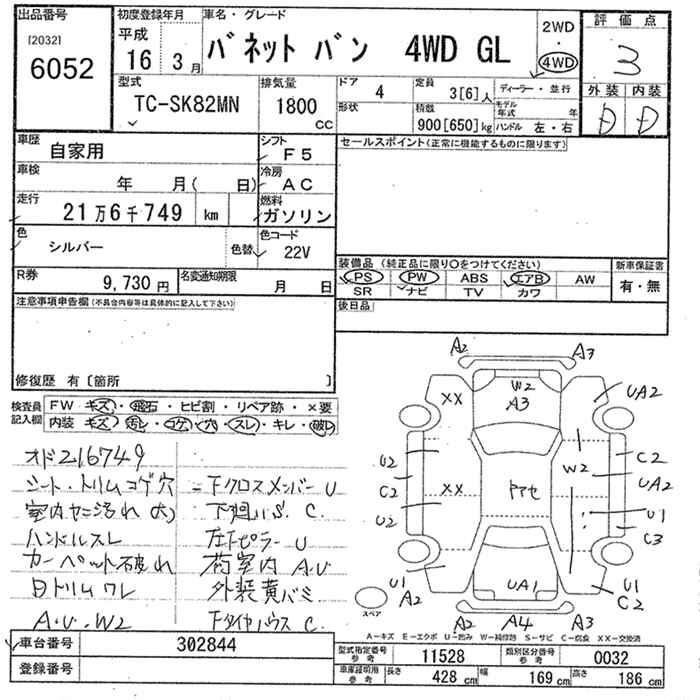 出品番号
[2032]
6052
初度登録年月
平成
16年3月
車名・グレード
バネット バン 4WD GL
2WD
・
4WD
評価点
3
外装 内装
D D
型式
TC-SK82MN
排気量
1800
CC
ドア
4
形状
定員
3[6]人
積載
900[650]kg
ディーラー・並行
モデル年式 年
ハンドル 左・右
車歴
自家用
シフト
F5
車検
年 月( 日)
冷房
AC
走行
21万6千749 km
燃料
ガソリン
色
シルバー
色替
色コード
22V
R券
9,730円
名変通知期限
月 日
セールスポイント(正常に機能するものに限ります)
装備品(純正品に限り○をつけてください)
PS PW ABS エアB AW
SR ナビ TV カワ
新車保証書
有・無
後日品
注意事項申告欄(不具合内容等は具体的に記入して下さい)
修復歴 有〔箇所 〕
検査員
記入欄
FW キズ・飛石・ヒビ割・リペア跡・×要
内装 キズ・汚レ・コゲ・穴・スレ・キレ・破レ
オド216749
シート・トリムコゲ穴
室内ヤニ汚れ(大)
ハンドルスレ
カーペット破れ
内トリムワレ
A・U・W2
下クロスメンバーU
下廻りS、C
左Fピラー U
荷室内 A・U
外装黄バミ
FタイヤハウスC
A2 A3
W2
A3
XX
UA2
U2
C2
U2
XX
W2
ヤマセ
C2
UA2
U1
C3
U1
A2
UA1
U1
C2
スペア
A2 A4 A3
A－キズ E－エクボ U－凹み W－補修跡 S－サビ C－腐食 XX－交換済
車台番号
302844
登録番号
型式指定番号
参考
11528
類別区分番号
参考
0032
車庫証明用
参考
長さ
428 cm
幅
169 cm
高さ
186 cm